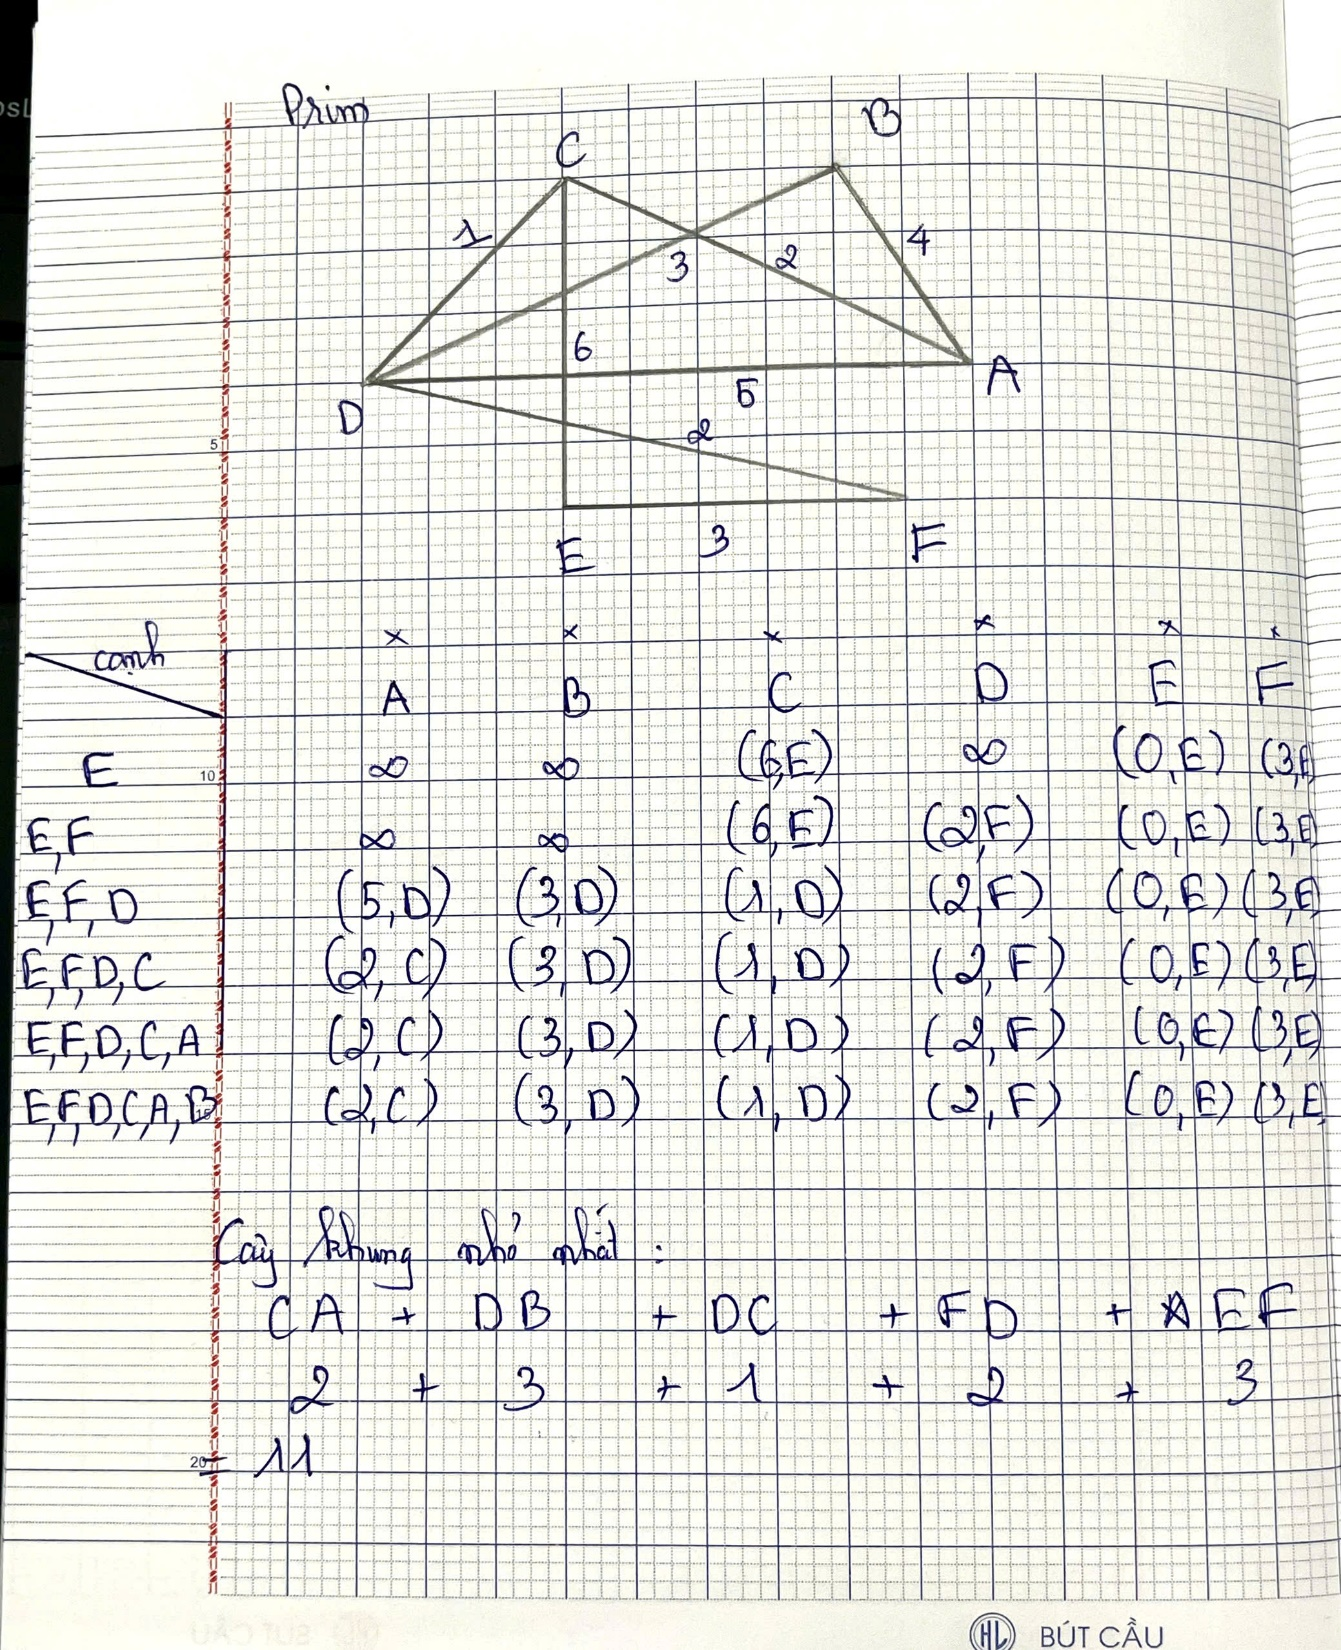 Prim
B
C
1
4
3
2
6
A
5
D
2
5
E
3
F
cạnh
x x x x x x
A B C D E F
E ∞ ∞ (6,E) ∞ (0,E) (3,E
10
E,F ∞ ∞ (6,E) (2,F) (0,E) (3,E
E,F,D (5,D) (3,D) (1,D) (2,F) (0,E) (3,E
E,F,D,C (2,C) (3,D) (1,D) (2,F) (0,E) (3,E)
E,F,D,C,A (2,C) (3,D) (1,D) (2,F) (0,E) (3,E)
E,F,D,C,A,B (2,C) (3,D) (1,D) (2,F) (0,E) (3,E
Cây khung nhỏ nhất :
CA + DB + DC + FD + EF
2 + 3 + 1 + 2 + 3
= 11
20
HL BÚT CẦU